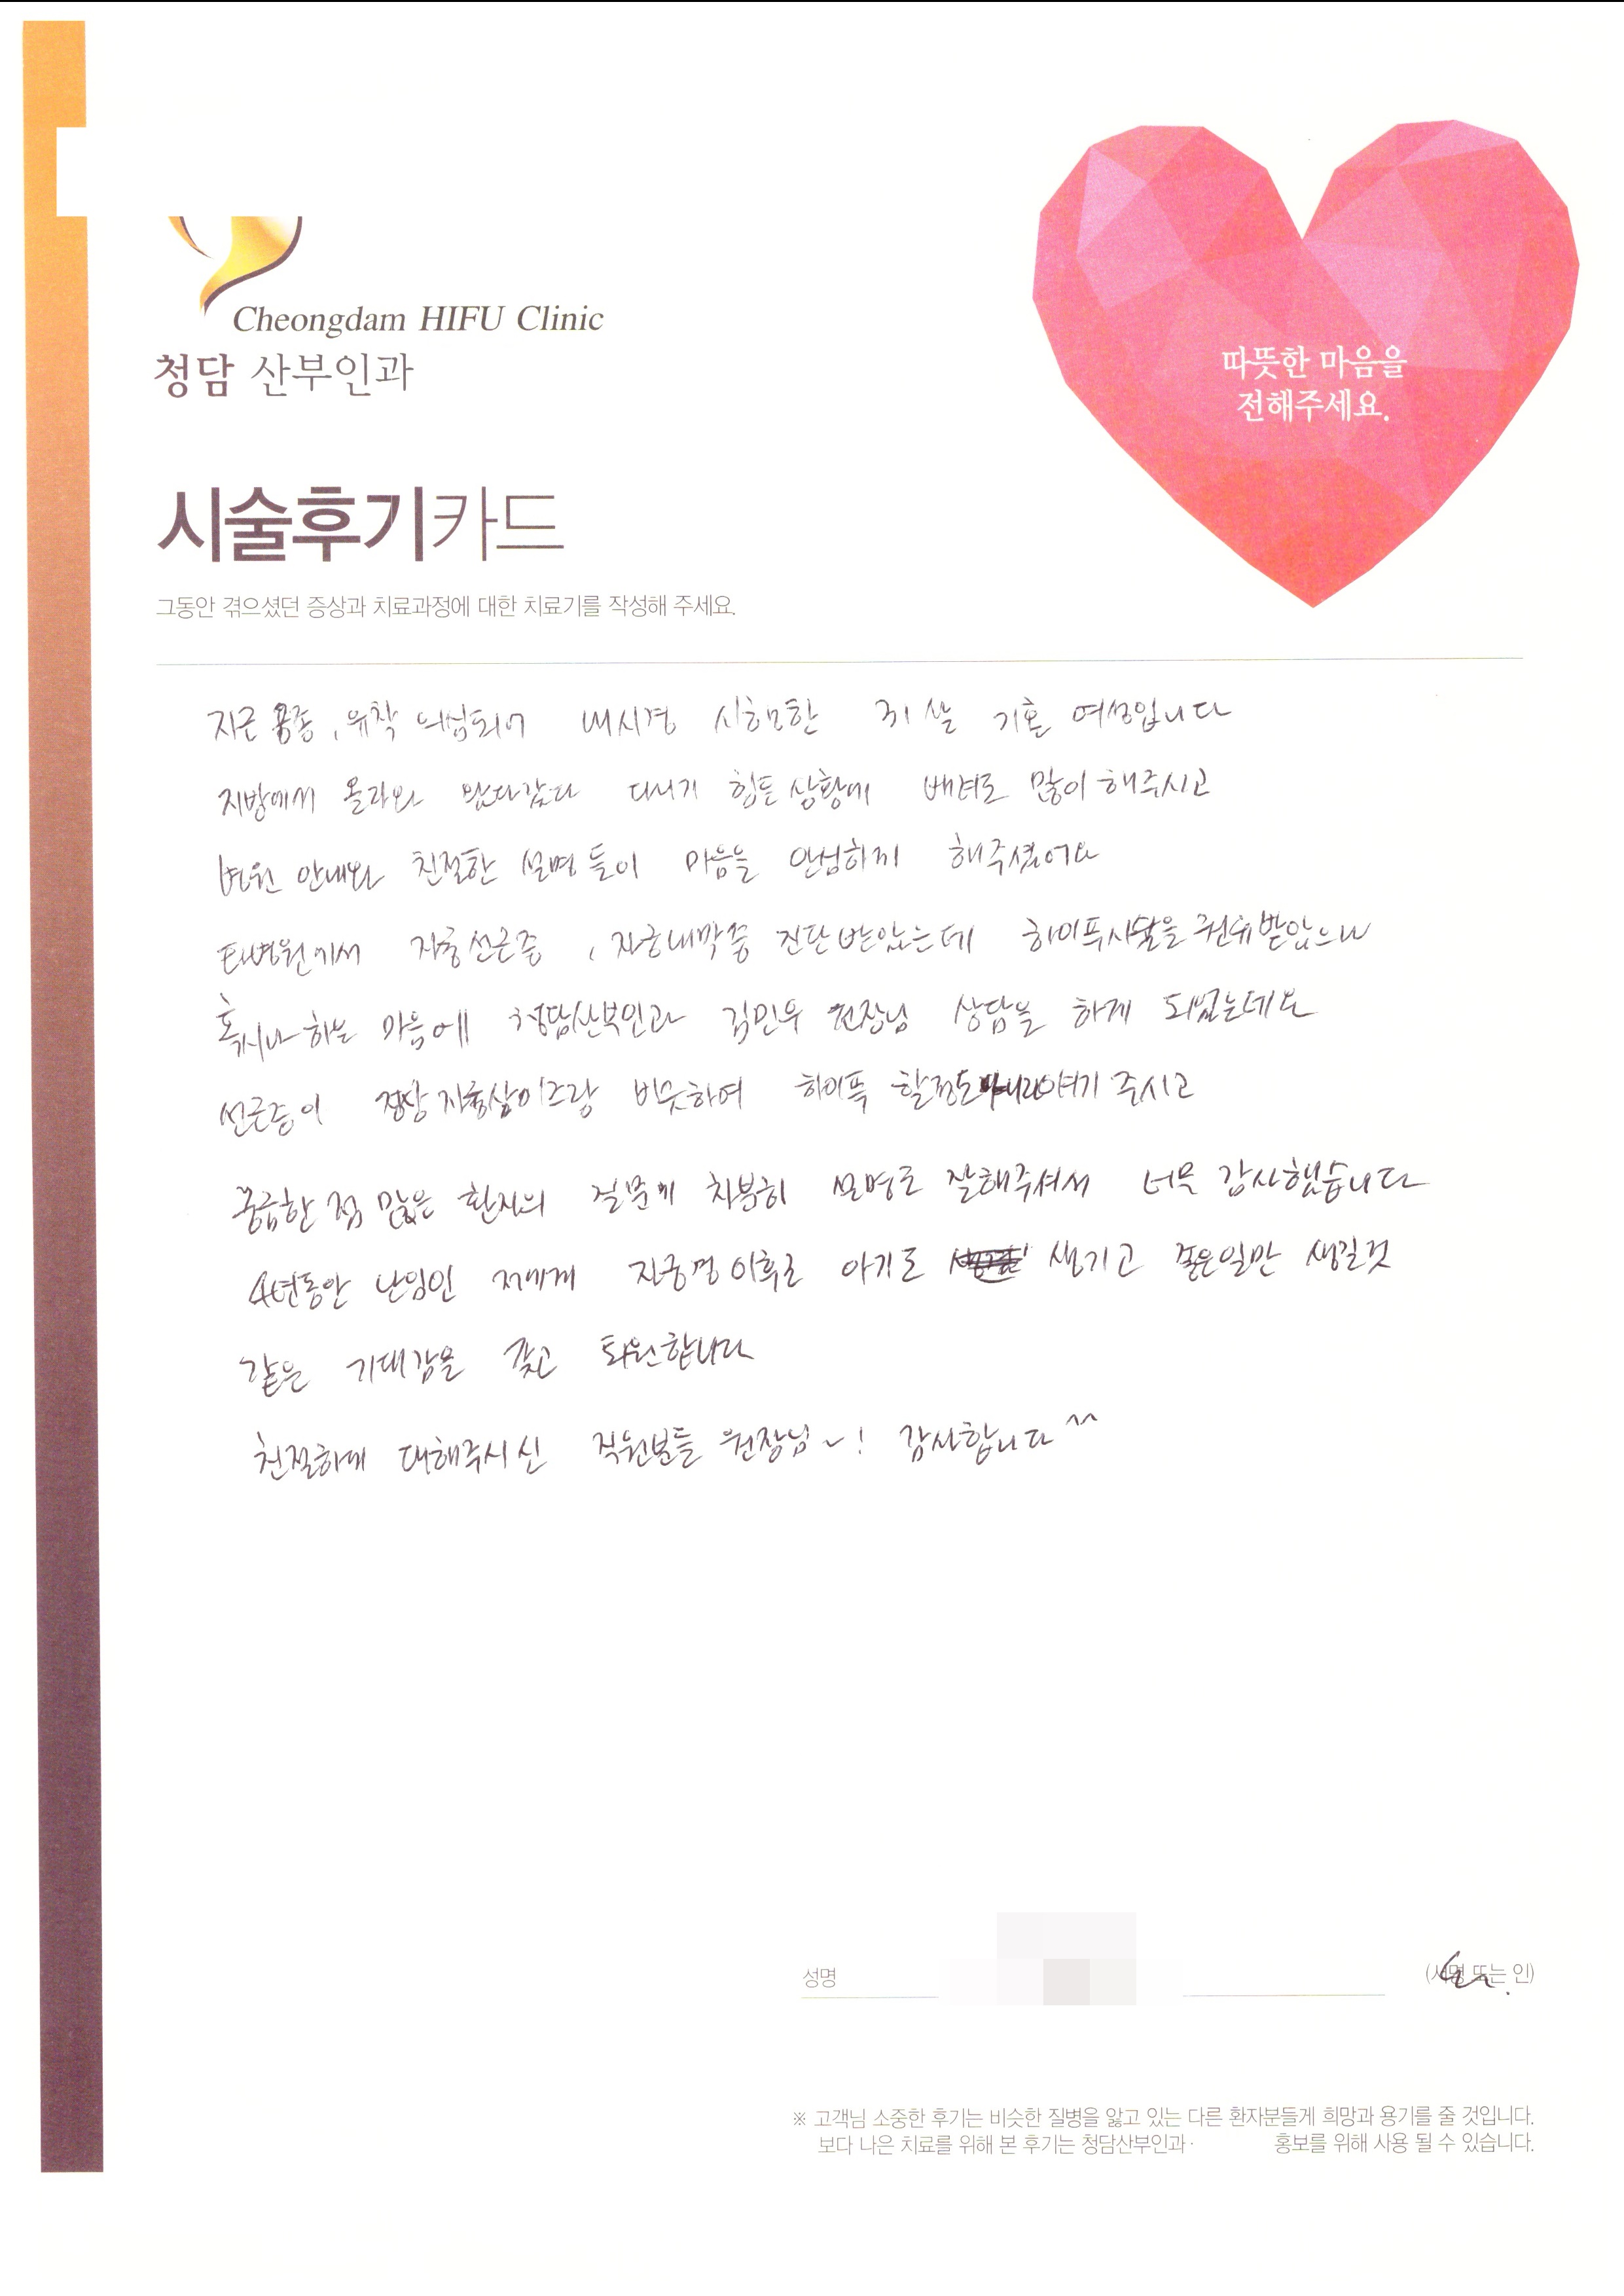 Cheongdam HIFU Clinic
청담 산부인과
따뜻한 마음을
전해주세요.
시술후기카드
그동안 겪으셨던 증상과 치료과정에 대한 치료기를 작성해 주세요.
용종, 유착 의심되어 내시경 시행한 31살 기혼 여성입니다
지방에서 올라와 왔다갔다 다니기 힘든 상황에 배려도 많이 해주시고
병원 안내와 친절한 설명들이 마음을 안심하게 해주셨어요
타병원에서 자궁선근증, 자궁내막증 진단받았는데 하이푸시술을 권유받았으나
혹시나 하는 마음에 청담산부인과 김민우 원장님 상담을 하게 되었는데요
선근증이 정상자궁사이즈랑 비슷하여 하이푸 할정도 아니라 여겨 주시고
궁금한 점 많은 환자의 질문에 차분히 설명도 잘해주셔서 너무 감사했습니다
4년동안 난임인 저에게 자궁경 이후로 아기도 생기고 좋은일만 생길것
같은 기대감을 갖고 퇴원합니다
친절하게 대해주시신 직원분들 원장님~! 감사합니다^^
성명 (서명 또는 인)
※ 고객님 소중한 후기는 비슷한 질병을 앓고 있는 다른 환자분들게 희망과 용기를 줄 것입니다.
보다 나은 치료를 위해 본 후기는 청담산부인과· 홍보를 위해 사용 될 수 있습니다.